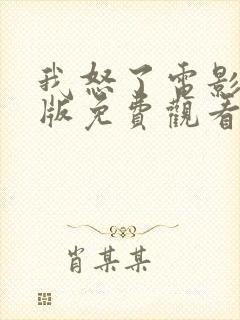 我怒了電影
版免費觀看
肖某某